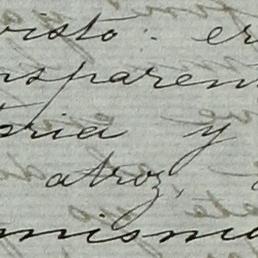 visto: er
nsparen
oria y
atroz,
misma